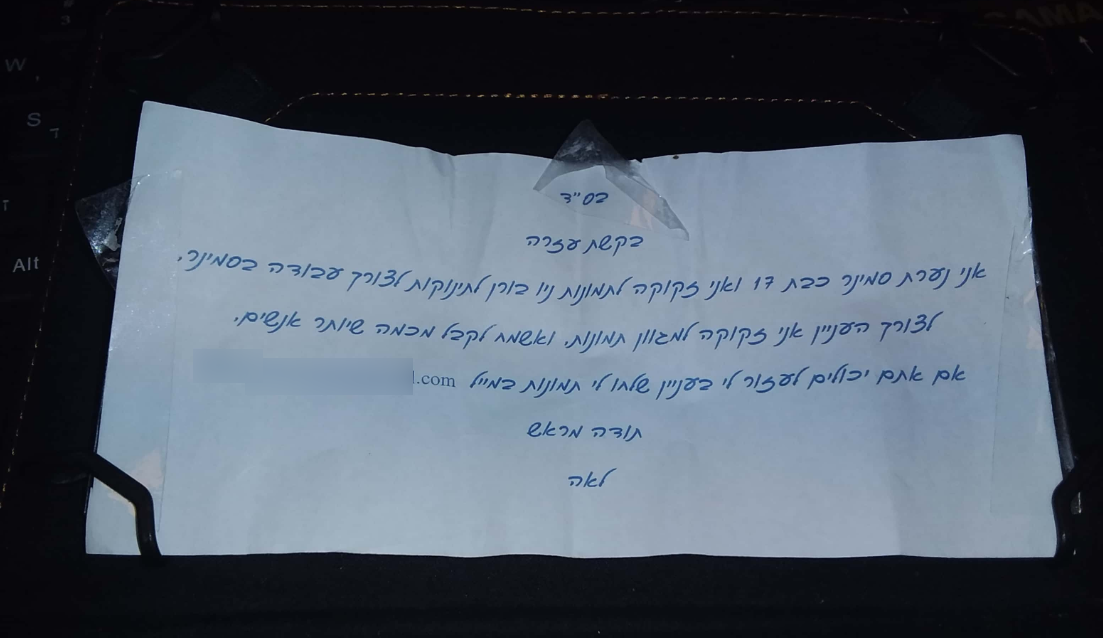 בס"ד
בקשת עזרה
אני נערת סמינר כבת 17 ואני זקוקה לתמונות ניו בורן לתינוקות לצורך עבודה בסמינר.
לצורך העניין אני זקוקה למגוון תמונות. ואשמח לקבל מכמה שיותר אנשים.
אם אתם יכולים לעזור לי בעניין שלחו לי תמונות במייל l.com
תודה מראש
לאה
W
S
ד
Alt